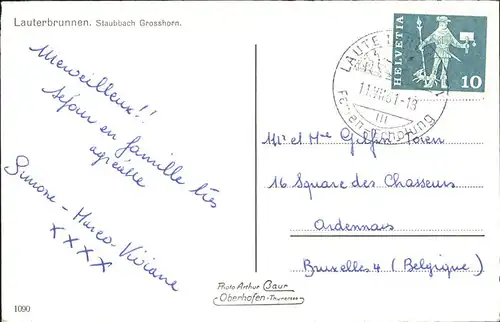 Lauterbrunnen. Staubbach Grosshorn.
Merveilleux!!
Séjour en famille très
agréable
Simone - Marco Viviane
xxxx
HELVETIA
10
LAUTE
11.VIII.61-18
Ferien Erholung
Mr et Me
16 Square des Chasseurs
Ardennais
Bruxelles 4 (Belgique)
Photo Arthur Baur
Oberhofen-Thunersee
1090